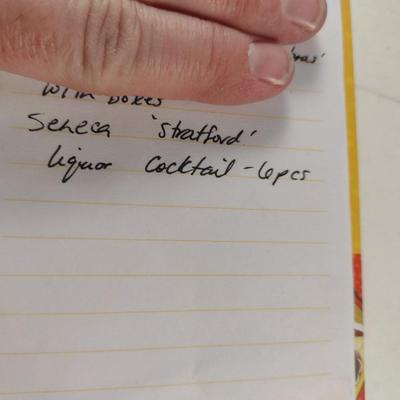 with boxes
Seneca 'Stratford'
liquor Cocktail - 6pcs